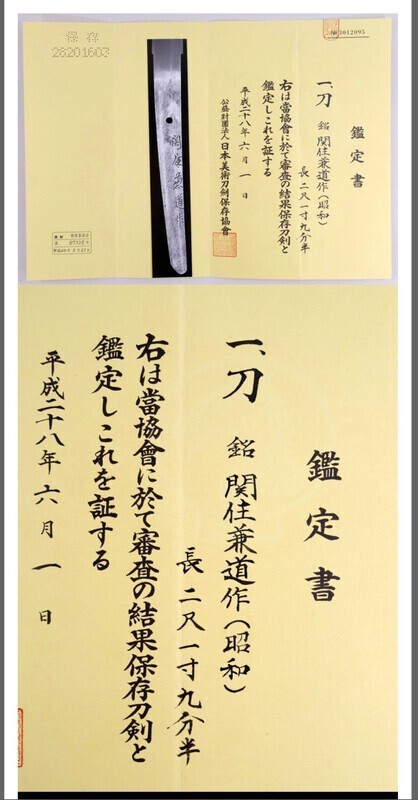 保存
28201603
№ 3012095
鑑定書
一、刀 銘 関住兼道作(昭和)
長 二尺一寸九分半
右は當協會に於て審査の結果保存刀剣と
鑑定しこれを証する
平成二十八年六月一日
公益財團法人日本美術刀剣保存協會
関住兼道作
鑑定書
一、刀 銘 関住兼道作(昭和)
長 二尺一寸九分半
右は當協會に於て審査の結果保存刀剣と
鑑定しこれを証する
平成二十八年六月一日